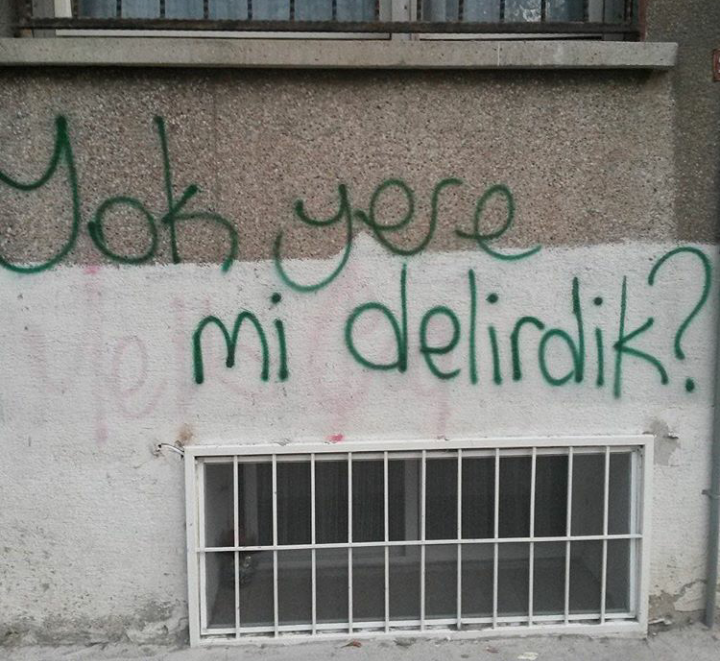 Yok yere
mi delirdik?